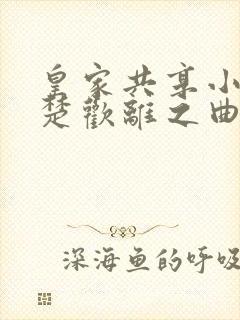 皇家共享小
楚歡離之曲
深海鱼的呼吸